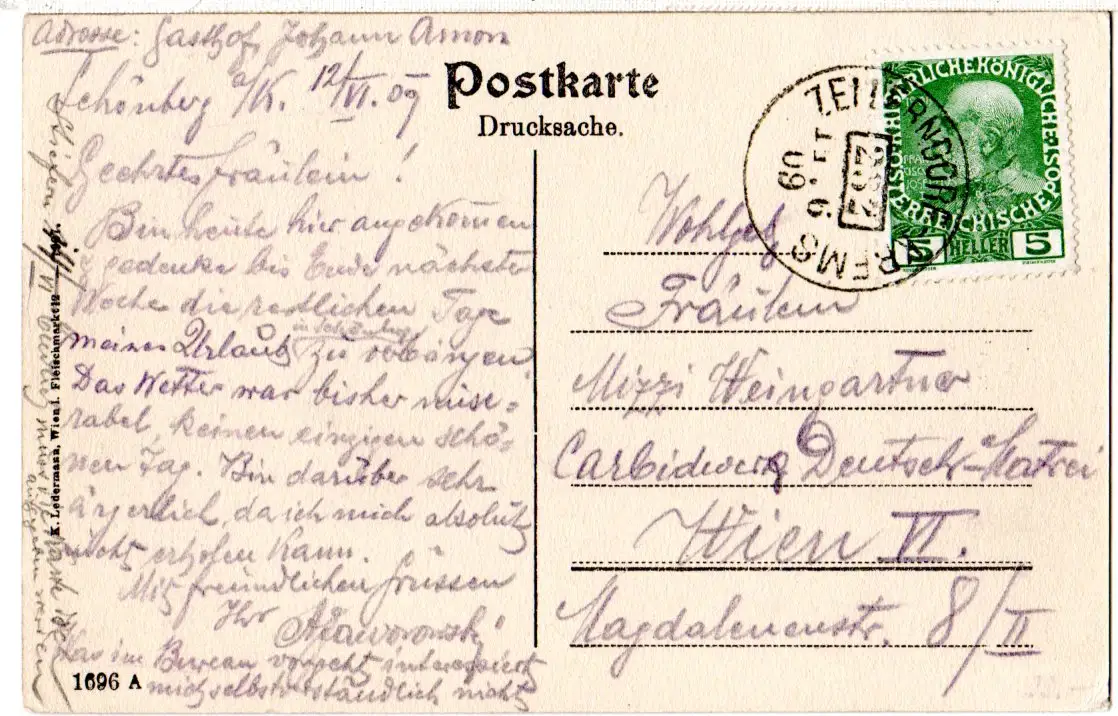 Adresse: Gasthof Johann Amon
Schönberg a/K. 12/VI. 09
Geehrtes Fräulein!
Bin heute hier angekommen
gedenke bis Ende nächster
Woche die restlichen Tage
meines Urlaub zu
Das Wetter war bisher mise-
rabel, keinen einzigen schö-
nen Tag. Bin darüber sehr
ärgerlich, da ich mich absolut
nicht erholen kann.
Mit freundlichen Grüssen
Ihr
Was im Bureau vorgeht interessiert
mich selbstverständlich nicht
K. Ledermann, Wien I. Fleischmarkt 12
1696 A
Postkarte
Drucksache.
ZELLERNDORF
KREMS
202
KAISERLICHE KÖNIGLICHE ÖSTERREICHISCHE POST
5 HELLER 5
Wohlgeb
Fräulein
Mizzi Weingartner
Carbidwerk Deutsch-Matrei
Wien VI.
Magdalenenstr. 8/II